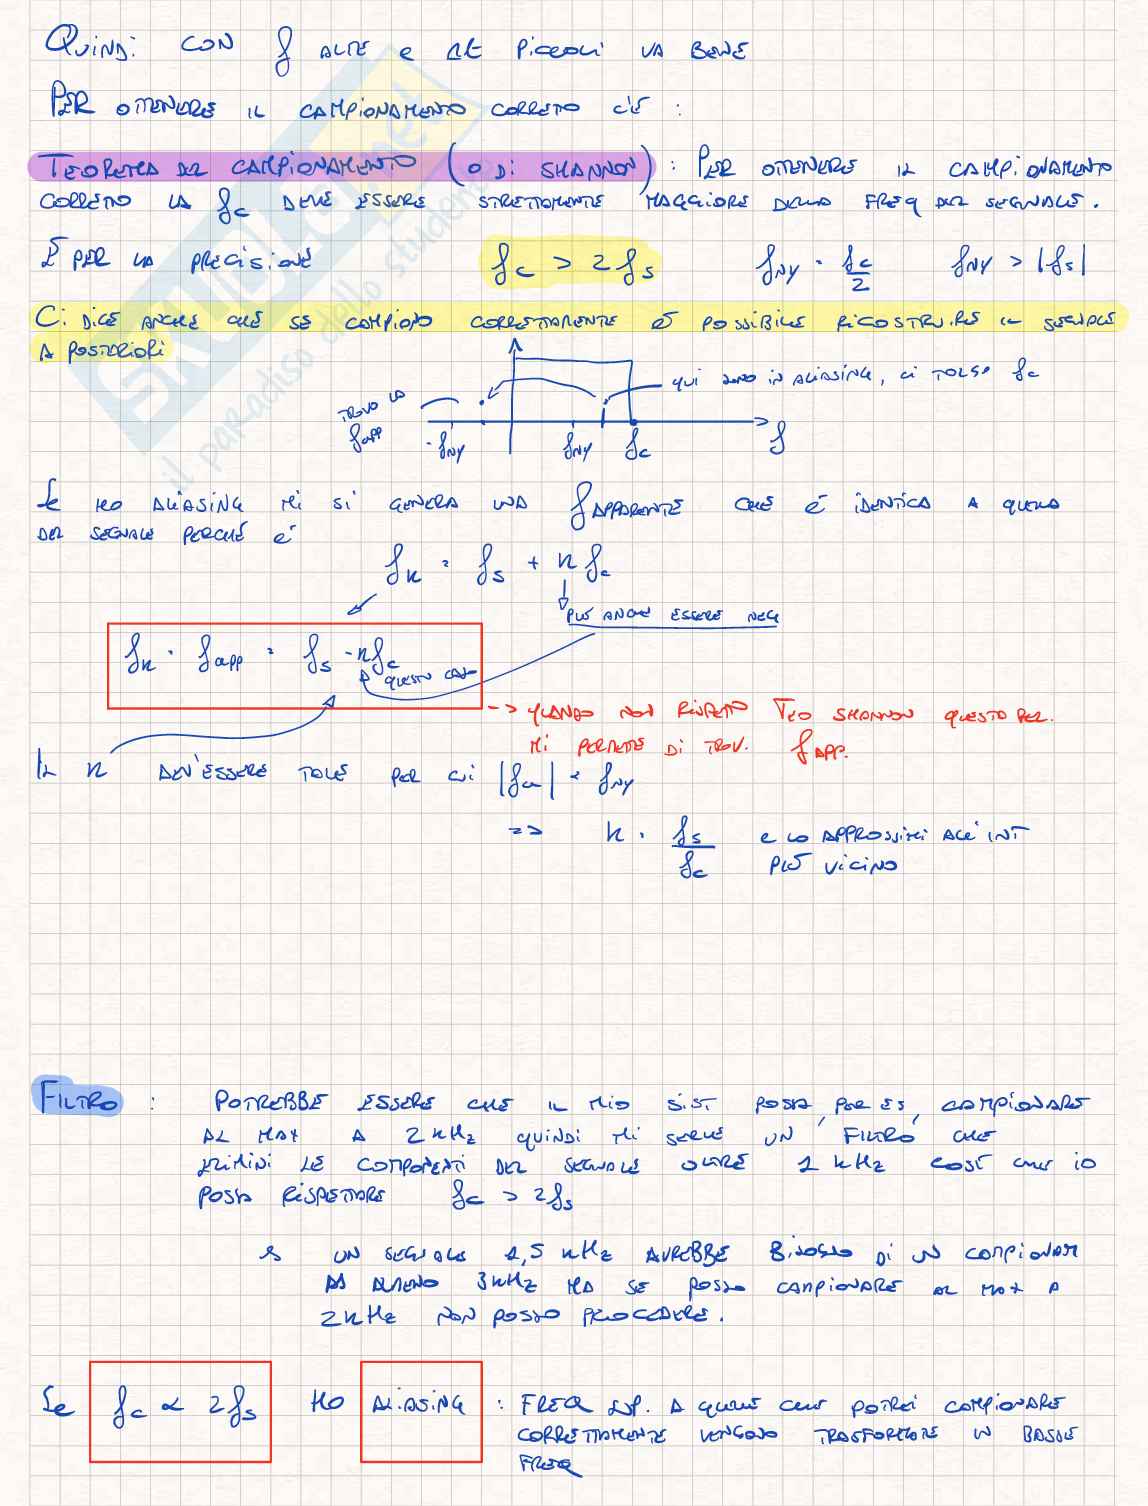 QUINDI CON f ALTE e Δt PICCOLI VA BENE
PER OTTENERE IL CAMPIONAMENTO CORRETTO C'È :
TEOREMA DEL CAMPIONAMENTO (O DI SHANNON) : PER OTTENERE IL CAMPIONAMENTO
CORRETTO LA fc DEVE ESSERE STRETTAMENTE MAGGIORE DELLA FREQ DEL SEGNALE.
E PER LA PRECISIONE fc > 2 fs fNY = fc/2 fNY > |fs|
CI DICE ANCHE CHE SE CAMPIONO CORRETTAMENTE È POSSIBILE RICOSTRUIRE IL SEGNALE
A POSTERIORI
QUI SONO IN ALIASING, CI TOLGO fc
TROVO LA
fapp
-fNY fNY fc f
SE HO ALIASING MI SI GENERA UNA fAPPARENTE CHE È IDENTICA A QUELLA
DEL SEGNALE PERCHÉ È
fn = fs + n fc
PUÒ ANCHE ESSERE NEG
fn = fapp = fs - nfc
QUESTO CASO
-> QUANDO NON RISPETTO TEO SHANNON QUESTA REL.
MI PERMETTE DI TROV. fAPP.
IL n DEV'ESSERE TALE PER CUI |fn| < fNY
=> n = fs/fc E LO APPROSSIMI ALL'INT
PIÙ VICINO
FILTRO : POTREBBE ESSERE CHE IL MIO SIST POSSA, PER ES, CAMPIONARE
AL MAX A 2 kHz QUINDI MI SERVE UN FILTRO CHE
ELIMINI LE COMPONENTI DEL SEGNALE OLTRE 1 kHz COSÌ CHE IO
POSSA RISPETTARE fc > 2fs
es UN SEGNALE 1,5 kHz AVREBBE BISOGNO DI UN CAMPIONAM
DA ALMENO 3kHz MA SE POSSO CAMPIONARE AL MAX A
2kHz NON POSSO PROCEDERE.
SE fc < 2fs HO ALIASING : FREQ SUP. A QUELLE CHE POTREI CAMPIONARE
CORRETTAMENTE VENGONO TRASFORMATE IN BASSE
FREQ
il paradiso dello studente